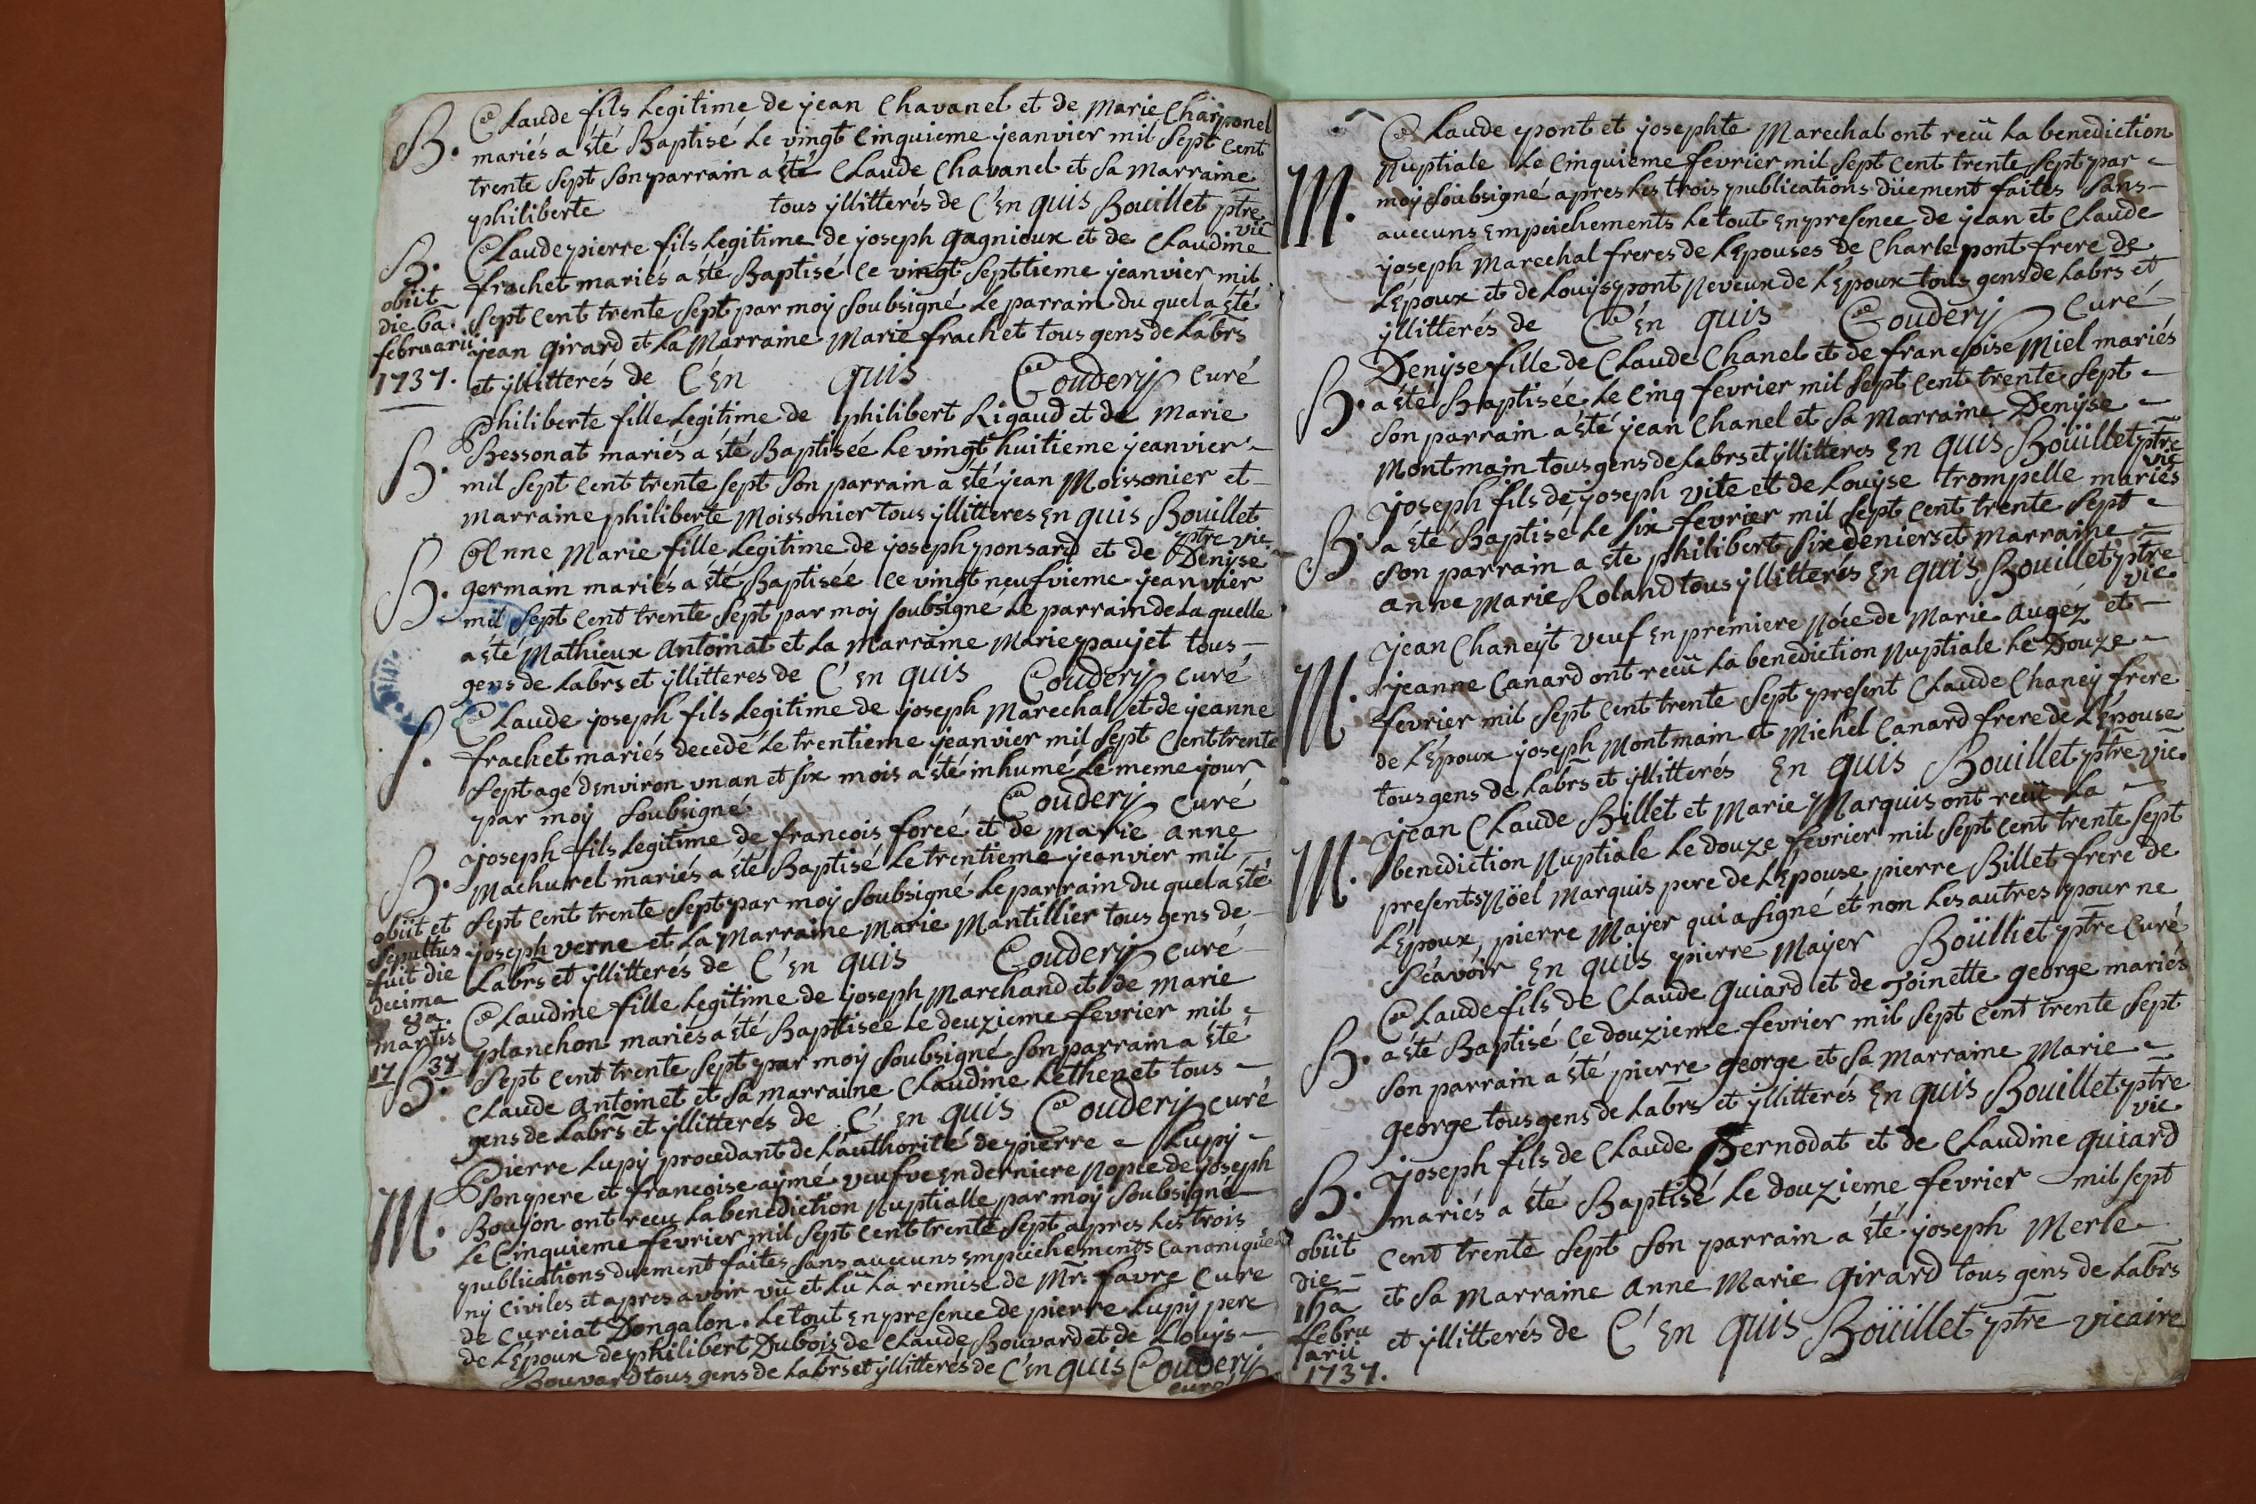 B. Claude fils Legitime de jean Chavanel et de Marie Charponel
mariés a été Baptisé Le vingt Cinquieme jeanvier mil Sept Cent
trente Sept Son parrain a été Claude Chavanel et Sa Marraine
philiberte tous yllitterés de C'En quis Bouillet ptre
vic
B. Claude pierre fils Legitime de joseph gagnieux et de Claudine
frachet mariés a été Baptisé Le vingt Septtieme jeanvier mil
Sept Cent trente Sept par moÿ Soubsigné Le parrain du quel a été
jean girard et La Marraine Marie frachet tous gens de Labrs
et yllitterés de C'En quis Couderÿ Curé
obiit
die 6a.
februarii
1737.
B. Philiberte fille Legitime de philibert Rigaud et de Marie
Bessonat mariés a été Baptisée Le vingt huitieme jeanvier
mil Sept Cent trente Sept Son parrain a été jean Moissonier et
Marraine philiberte Moissonier tous yllitteres En quis Bouillet
ptre vic
B. Anne Marie fille Legitime de joseph ponsard et de Denÿse
germain mariés a été Baptisée Le vingt neufvieme jeanvier
mil Sept Cent trente Sept par moÿ Soubsigné Le parrain de La quelle
a été Mathieux Antoinat et La Marraine Marie paujet tous
gens de Labrs et yllitteres de C'En quis Couderÿ Curé
S. Claude joseph fils Legitime de joseph Marechal et de jeanne
frachet mariés decedé Le trentieme jeanvier mil Sept Cent trente
Sept agé d'environ vn an et Six mois a été inhumé Le meme jour
par moÿ Soubsigné Couderÿ Curé
B. joseph fils Legitime de françois forcé et de Marie Anne
Machurel mariés a été Baptisé Le trentieme jeanvier mil
Sept Cent trente Sept par moÿ Soubsigné Le parrain du quel a été
joseph verne et La Marraine Marie Mantillier tous gens de
Labrs et yllitterés de C'En quis Couderÿ Curé
obiit et
Sepultus
fuit die
decima
8a.
martis
1737
B. Claudine fille Legitime de joseph Marchand et de Marie
planchon mariés a été Baptisée Le deuzieme fevrier mil
Sept Cent trente Sept par moÿ Soubsigné Son parrain a été
Claude Antoinet et Sa Marraine Claudine Lethenet tous
gens de Labrs et yllitterés de C'En quis Couderÿ Curé
M. Pierre Lupÿ procedant de L'authorité de pierre Lupÿ
Son pere et francoise aÿmé veufve En derniere Nopce de joseph
Boujon ont recu La benediction Nuptialle par moÿ Soubsigné
Le Cinquieme fevrier mil Sept Cent trente Sept apres Les trois
publications duement faites Sans auccuns Empeichements Canoniques
nÿ Civiles et apres avoir vû et Lû La remise de Mrs. favre Cure
de Curciat Dongalon. Le tout En presence de pierre Lupÿ pere
de L'Epoux de philibert Dubois de Claude Bouvard et de Louÿs
Bouvard tous gens de Labrs et yllitterés de C'En quis Couderÿ
curé
M. Claude pont et josephte Marechal ont reçû La benediction
Nuptiale Le Cinquieme fevrier mil Sept Cent trente Sept par
moÿ Soubsigné apres Les trois publications düement faites Sans
auccuns Empeichements Le tout En presence de jean et Claude
joseph Marechal freres de L'Epouses de Charle pont frere de
L'Époux et de Louÿs pont Neveux de L'Epoux tous gens de Labrs et
yllitterés de C'En quis Couderÿ Curé
B. Denÿse fille de Claude Chanel et de françoise Miel mariés
a été Baptisée Le Cinq fevrier mil Sept Cent trente Sept
Son parrain a été jean Chanel et Sa Marraine Denÿse
Montmain tous gens de Labrs et yllitteres En quis Boüillet ptre
vic
B. joseph fils de joseph vite et de Louÿse trompelle mariés
a été Baptisé Le Six fevrier mil Sept Cent trente Sept
Son parrain a été philibert Sixdeniers et Marraine
anne Marie Roland tous yllitterés En quis Bouillet ptre
vic
M. jean Chaneÿt veuf En premiere Nôce de Marie Augéz et
jeanne Canard ont reçû La benediction Nuptiale Le Douze
fevrier mil Sept Cent trente Sept present Claude Chaneÿ frere
de L'Époux joseph Montmain et Michel Canard frere de L'Epouse
tous gens de Labrs et yllitterés En quis Bouillet ptre vic.
M. jean Claude Billet et Marie Marquis ont reçü La
benediction Nuptiale Le douze fevrier mil Sept Cent trente Sept
presents Nöel Marquis pere de L'Épouse pierre Billet frere de
L'Époux, pierre Mayer qui a Signé et non Les autres pour ne
Sçavoir En quis pierre Mayer Boülliet ptre Curé
B. Claude fils de Claude guiard et de Toinette george mariés
a été Baptisé Ce douzieme fevrier mil Sept Cent trente Sept
Son parrain a été pierre george et Sa Marraine Marie
george tous gens de Labrs et yllitterés En quis Bouillet ptre
vic
B. joseph fils de Claude Bernodat et de Claudine guiard
mariés a été Baptisé Le douzieme fevrier mil Sept
cent trente Sept Son parrain a été joseph Merle
et Sa Marraine Anne Marie girard tous gens de Labrs
et yllitterés de C'En quis Boüillet ptre vicaire
obiit
die
15a
febru
arii
1737.